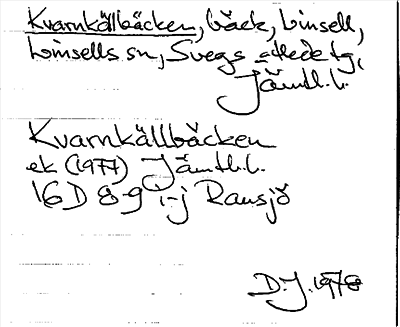 Kvarnkällbäcken, bäck, Linsell,
Linsells sn, Svegs -ttede tg,
Jämtl.l.
Kvarnkällbäcken
ek (1977) Jämtl.l.
16D 8-9 i-j Ransjö
D.J. 1978